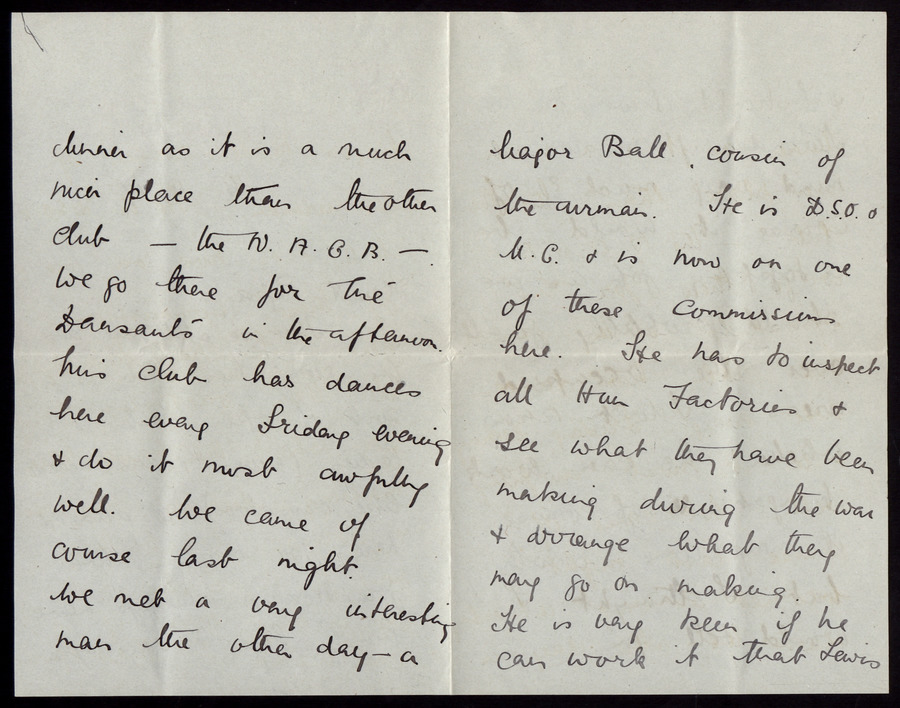 dinner as it is a much
nicer place than the other
club — the W. A. C. B. —.
We go there for Thé
Dansants in the afternoon.
This club has dances
here every Friday evening
& do it most awfully
well. We came of
course last night.
We met a very interesting
man the other day — a
Major Ball, cousin of
the airman. He is D.S.O. &
M.C. & is now on one
of these Commissions
here. He has to inspect
all Hun Factories &
see what they have been
making during the war
& arrange what they
may go on making.
He is very keen if he
can work it that Lewis